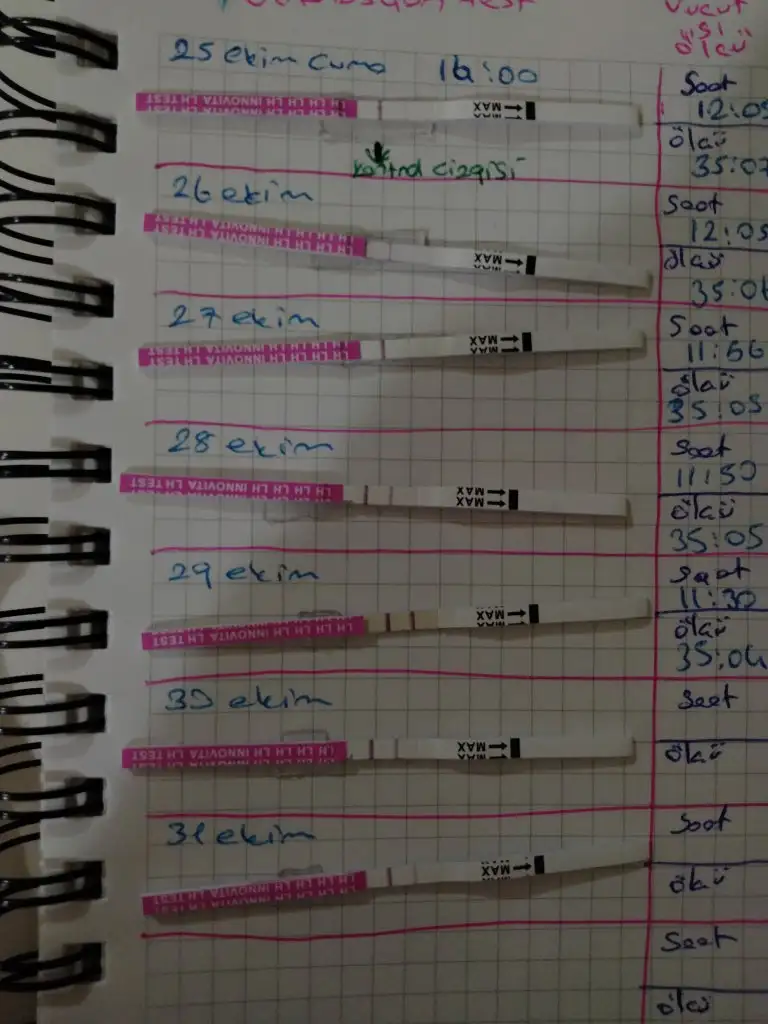 Vücut
ısı
ölçü
25 ekim cuma 16:00
LH TEST LH INNOVITA LH LH LH LH
MAX
Saat
12:05
kontrol çizgisi
Ölçü
35:07
26 ekim
LH TEST LH INNOVITA LH LH LH LH
MAX
Saat
12:05
Ölçü
27 ekim
LH TEST LH INNOVITA LH LH LH LH
MAX
Saat
11:56
ölçü
35:05
28 ekim
LH TEST LH INNOVITA LH LH LH LH
MAX
MAX
Saat
11:50
Ölçü
35:05
29 ekim
LH TEST LH INNOVITA LH LH LH LH
MAX
Saat
11:30
ölçü
35:04
30 ekim
LH TEST LH INNOVITA LH LH LH LH
MAX
Saat
Ölçü
31 ekim
LH TEST LH INNOVITA LH LH LH LH
MAX
Saat
ölçü
Saat
ölçü